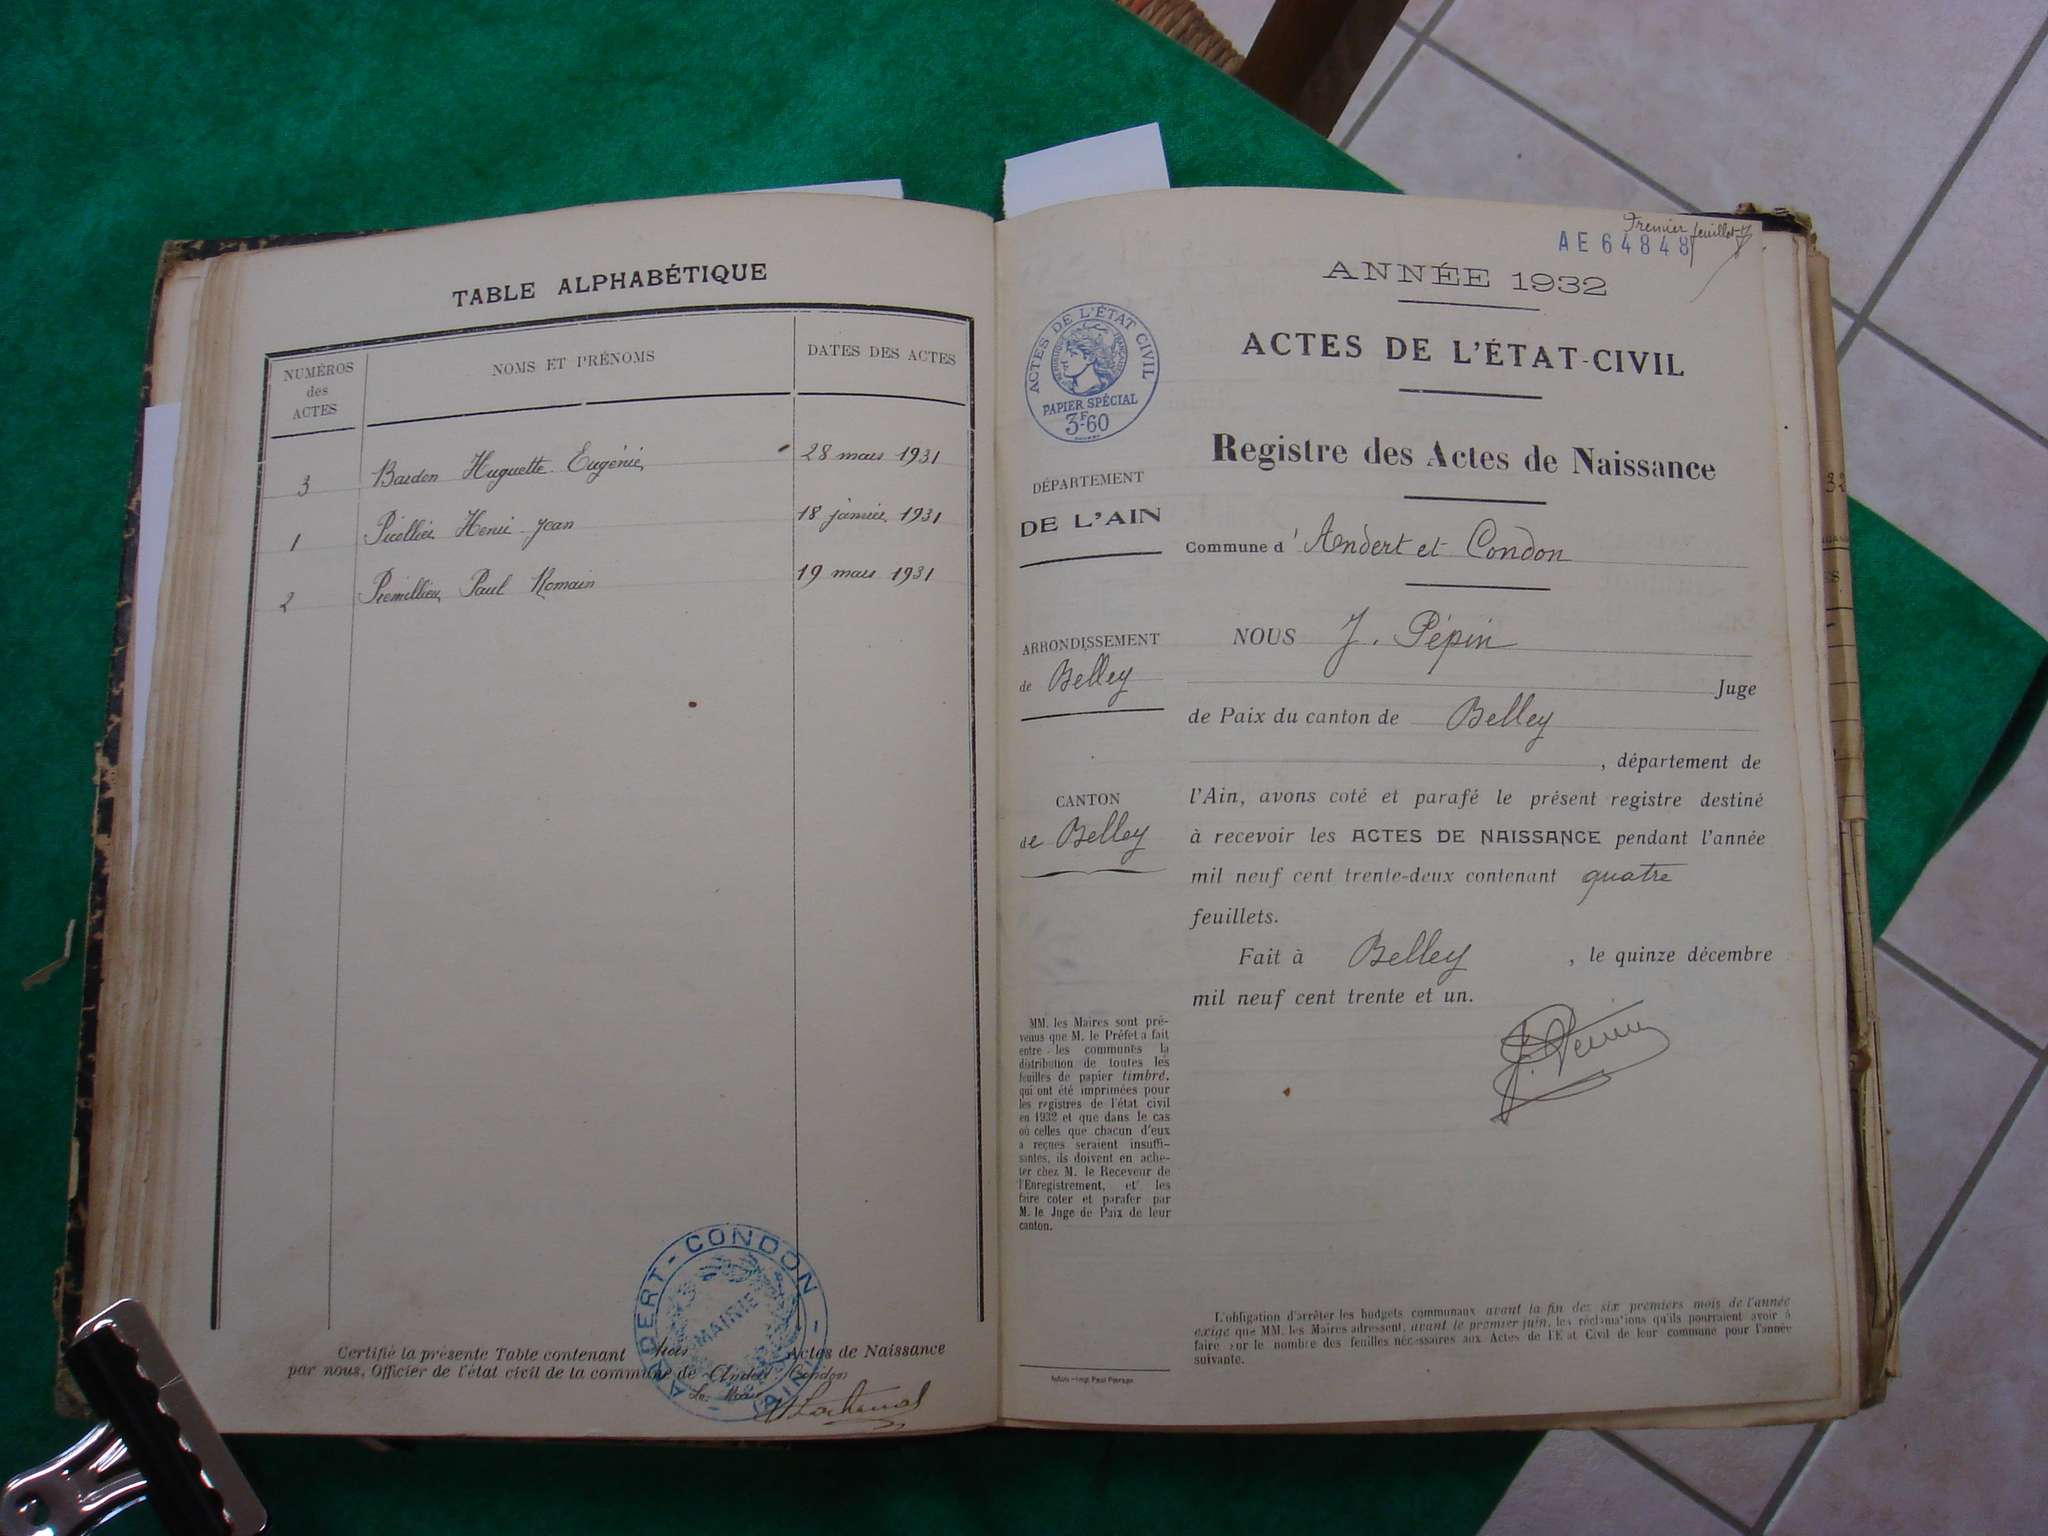 TABLE ALPHABÉTIQUE
NUMÉROS des ACTES
NOMS ET PRÉNOMS
DATES DES ACTES
3 Bardon Huguette Eugénie 28 mars 1931
1 Henri Jean 18 janvier 1931
2 Premillieu Paul Romain 19 mars 1931
Certifié la présente Table contenant trois Actes de Naissance
par nous, Officier de l'état civil de la commune de Andert Condon
Le Maire
ANDERT-CONDON
MAIRIE
Premier feuillet
AE 64848
ANNÉE 1932
ACTES DE L'ÉTAT-CIVIL
Registre des Actes de Naissance
ACTES DE L'ÉTAT CIVIL
RÉPUBLIQUE FRANÇAISE
PAPIER SPÉCIAL
3F.60
DÉPARTEMENT
DE L'AIN
Commune d' Andert et Condon
ARRONDISSEMENT
de Belley
CANTON
de Belley
NOUS J. Pépin
Juge
de Paix du canton de Belley
, département de
l'Ain, avons coté et parafé le présent registre destiné
à recevoir les ACTES DE NAISSANCE pendant l'année
mil neuf cent trente-deux contenant quatre
feuillets.
Fait à Belley , le quinze décembre
mil neuf cent trente et un.
J. Pépin
MM. les Maires sont pré-
venus que M. le Préfet a fait
entre les communes la
distribution de toutes les
feuilles de papier timbré,
qui ont été imprimées pour
les registres de l'état civil
en 1932 et que dans le cas
où celles que chacun d'eux
a reçues seraient insuffi-
santes, ils doivent en ache-
ter chez M. le Receveur de
l'Enregistrement, et les
faire coter et parafer par
M. le Juge de Paix de leur
canton.
L'obligation d'arrêter les budgets communaux avant la fin des six premiers mois de l'année
exige que MM. les Maires adressent, avant le premier juin, les réclamations qu'ils pourraient avoir à
faire sur le nombre des feuilles nécessaires aux Actes de l'Etat Civil de leur commune pour l'année
suivante.